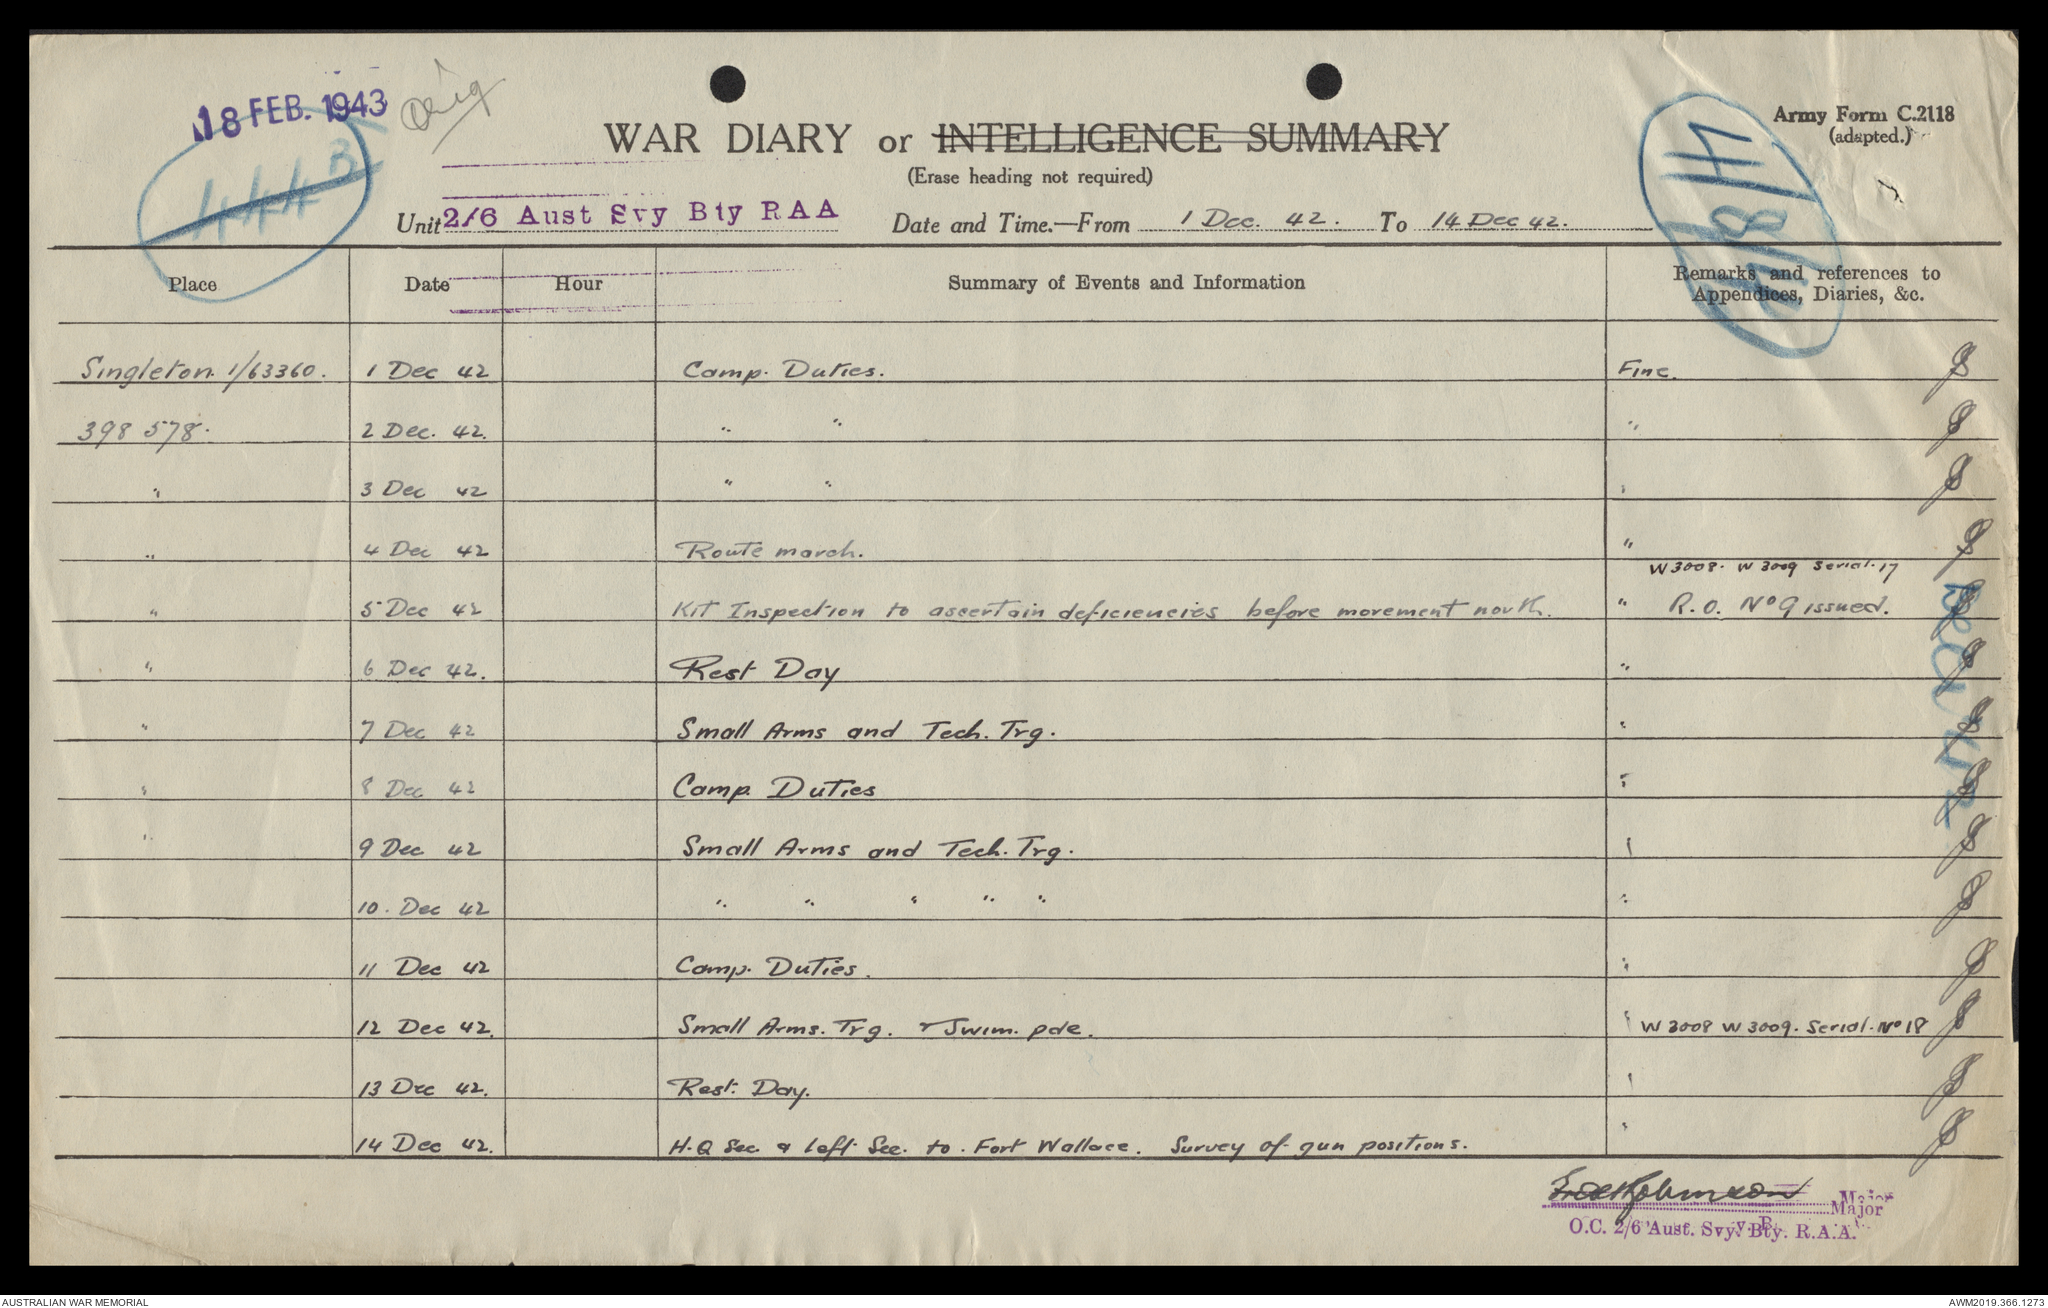 18 FEB. 1943
Orig
444 B
WAR DIARY or INTELLIGENCE SUMMARY
Army Form C.2118
(adapted.)
(Erase heading not required)
4/8/11
Unit 2/6 Aust Svy Bty RAA Date and Time.—From 1 Dec. 42. To 14 Dec 42.
Place Date Hour Summary of Events and Information Remarks and references to
Appendices, Diaries, &c.
Singleton. 1/63360. 1 Dec 42 Camp. Duties. Fine.
398 578. 2 Dec. 42. " " "
" 3 Dec 42 " " "
" 4 Dec 42 Route march. "
W3008. W3009 Serial. 17
" 5 Dec 42 Kit Inspection to ascertain deficiencies before movement north. " R.O. No 9 issued.
" 6 Dec 42. Rest Day "
" 7 Dec 42 Small Arms and Tech. Trg. "
" 8 Dec 42 Camp Duties "
" 9 Dec 42 Small Arms and Tech. Trg. "
10. Dec 42 " " " " " "
11 Dec 42 Camp. Duties. "
12 Dec 42. Small Arms. Trg. & Swim. pde. " W3008 W3009. Serial. No 18
13 Dec 42. Rest. Day. "
14 Dec 42. H.Q Sec & Left Sec. to. Fort Wallace. Survey of gun positions. "
Dec 42
Major
Major
O.C. 2/6 Aust. Svy. Bty. R.A.A.
AUSTRALIAN WAR MEMORIAL AWM2019.366.1273